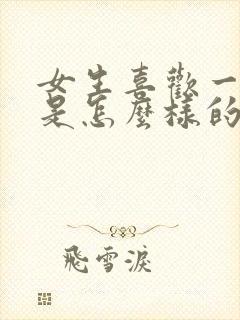 女生喜歡一
是怎麼樣的
飛雪淚